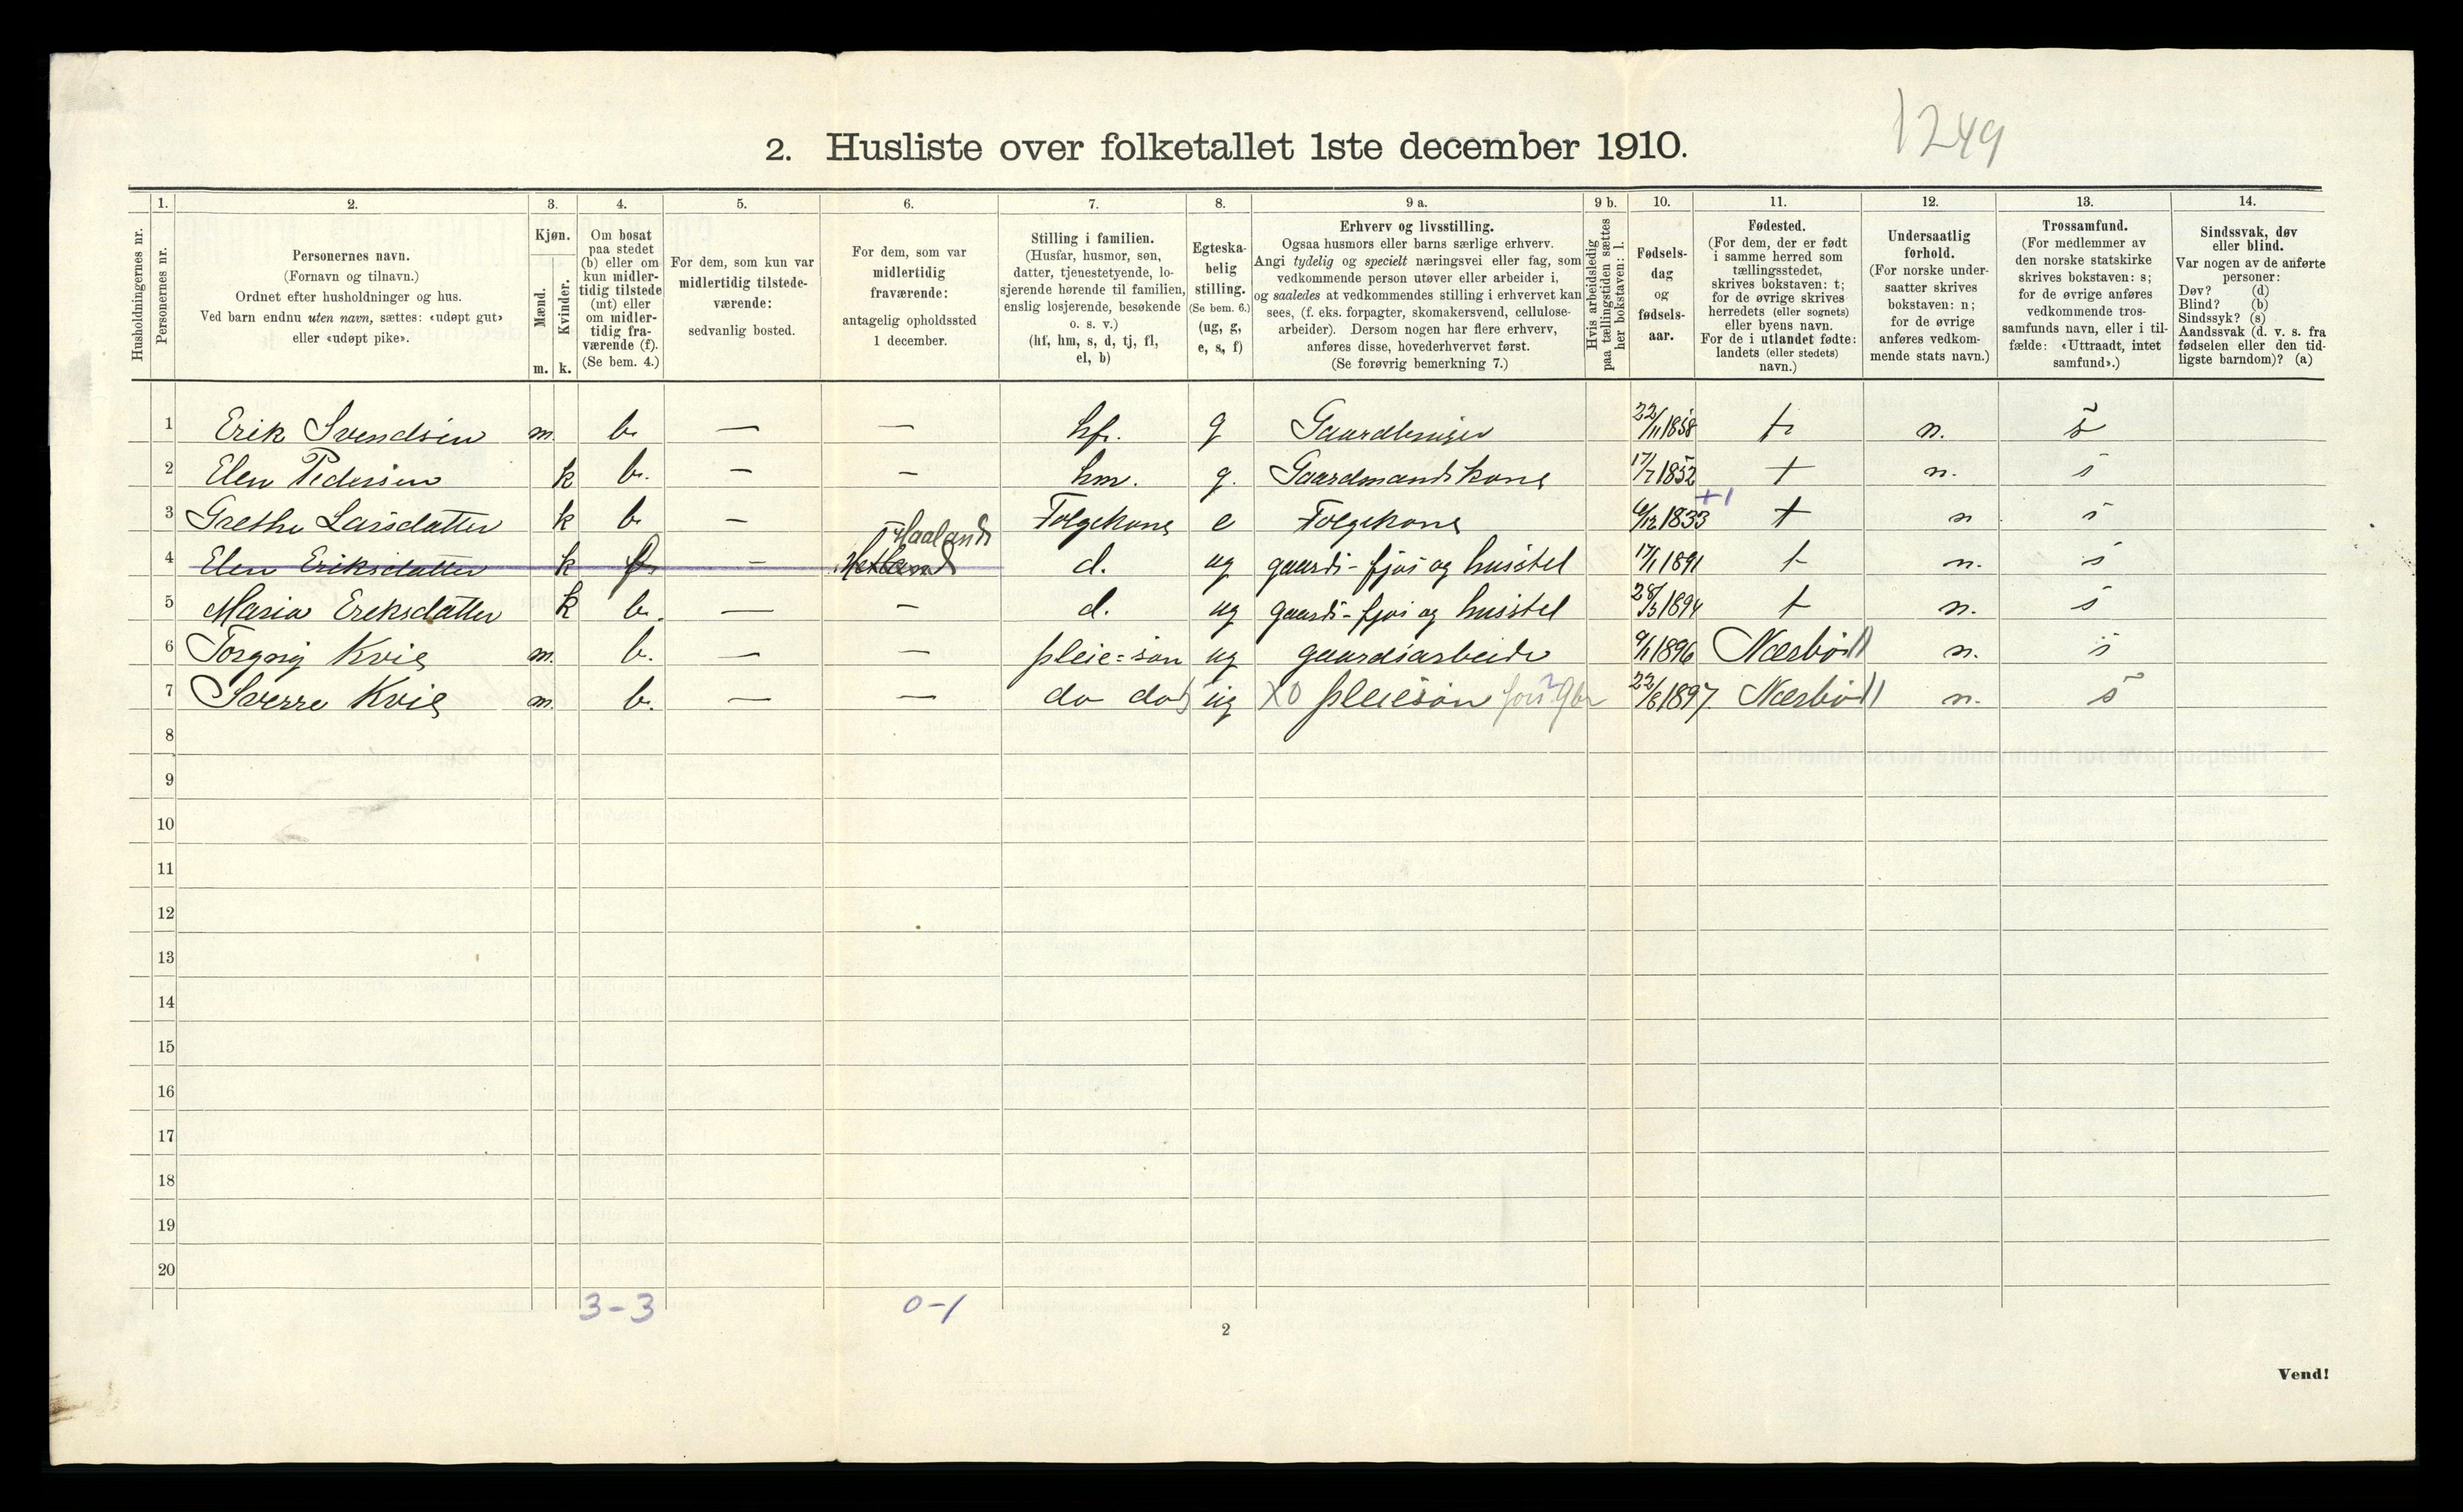 1249
2. Husliste over folketallet 1ste december 1910.
1. 2. 3. 4. 5. 6. 7. 8. 9 a. 9 b. 10. 11. 12. 13. 14.
Husholdningernes nr.
Personernes nr.
Personernes navn.
(Fornavn og tilnavn.)
Ordnet efter husholdninger og hus.
Ved barn endnu uten navn, sættes: «udøpt gut»
eller «udøpt pike».
Kjøn.
Mænd.
Kvinder.
m. k.
Om bosat
paa stedet
(b) eller om
kun midler-
tidig tilstede
(mt) eller
om midler-
tidig fra-
værende (f).
(Se bem. 4.)
For dem, som kun var
midlertidig tilstede-
værende:
sedvanlig bosted.
For dem, som var
midlertidig
fraværende:
antagelig opholdssted
1 december.
Stilling i familien.
(Husfar, husmor, søn,
datter, tjenestetyende, lo-
sjerende hørende til familien,
enslig losjerende, besøkende
o. s. v.)
(hf, hm, s, d, tj, fl,
el, b)
Egteska-
belig
stilling.
(Se bem. 6.)
(ug, g,
e, s, f)
Erhverv og livsstilling.
Ogsaa husmors eller barns særlige erhverv.
Angi tydelig og specielt næringsvei eller fag, som
vedkommende person utøver eller arbeider i,
og saaledes at vedkommendes stilling i erhvervet kan
sees, (f. eks. forpagter, skomakersvend, cellulose-
arbeider). Dersom nogen har flere erhverv,
anføres disse, hovederhvervet først.
(Se forøvrig bemerkning 7.)
Hvis arbeidsledig
paa tællingstiden sættes
her bokstaven: l.
Fødsels-
dag
og
fødsels-
aar.
Fødested.
(For dem, der er født
i samme herred som
tællingsstedet,
skrives bokstaven: t;
for de øvrige skrives
herredets (eller sognets)
eller byens navn.
For de i utlandet fødte:
landets (eller stedets)
navn.)
Undersaatlig
forhold.
(For norske under-
saatter skrives
bokstaven: n;
for de øvrige
anføres vedkom-
mende stats navn.)
Trossamfund.
(For medlemmer av
den norske statskirke
skrives bokstaven: s;
for de øvrige anføres
vedkommende tros-
samfunds navn, eller i til-
fælde: «Uttraadt, intet
samfund».)
Sindssvak, døv
eller blind.
Var nogen av de anførte
personer:
Døv? (d)
Blind? (b)
Sindssyk? (s)
Aandssvak (d. v. s. fra
fødselen eller den tid-
ligste barndom)? (a)
1 Erik Svendsen m. b. — — hf. g Gaardbruger 22/11 1858 t n. s
2 Elen Pedersen k b. — — hm. g. Gaardmandskone 17/7 1852 t n. s
+1
3 Grethe Larsdatter k b. — — Folgekone e Folgekone 6/12 1833 t n s
Haaland
4 Elen Eriksdatter k f — Hetland d. ug gaards-fjøs og husstel 17/1 1891 t n. s
5 Maria Eriksdatter k b. — — d. ug gaards-fjøs og husstel 28/3 1894 t n. s
6 Torgny Kvie m. b. — — pleie=søn ug gaardsarbeide 9/1 1896 Nærbø n. s
7 Sverre Kvie m. b. — — do do ug XO pleiesøn 22/6 1897. Nærbø n. s
8
9
10
11
12
13
14
15
16
17
18
19
20
3-3 0-1
2
Vend!